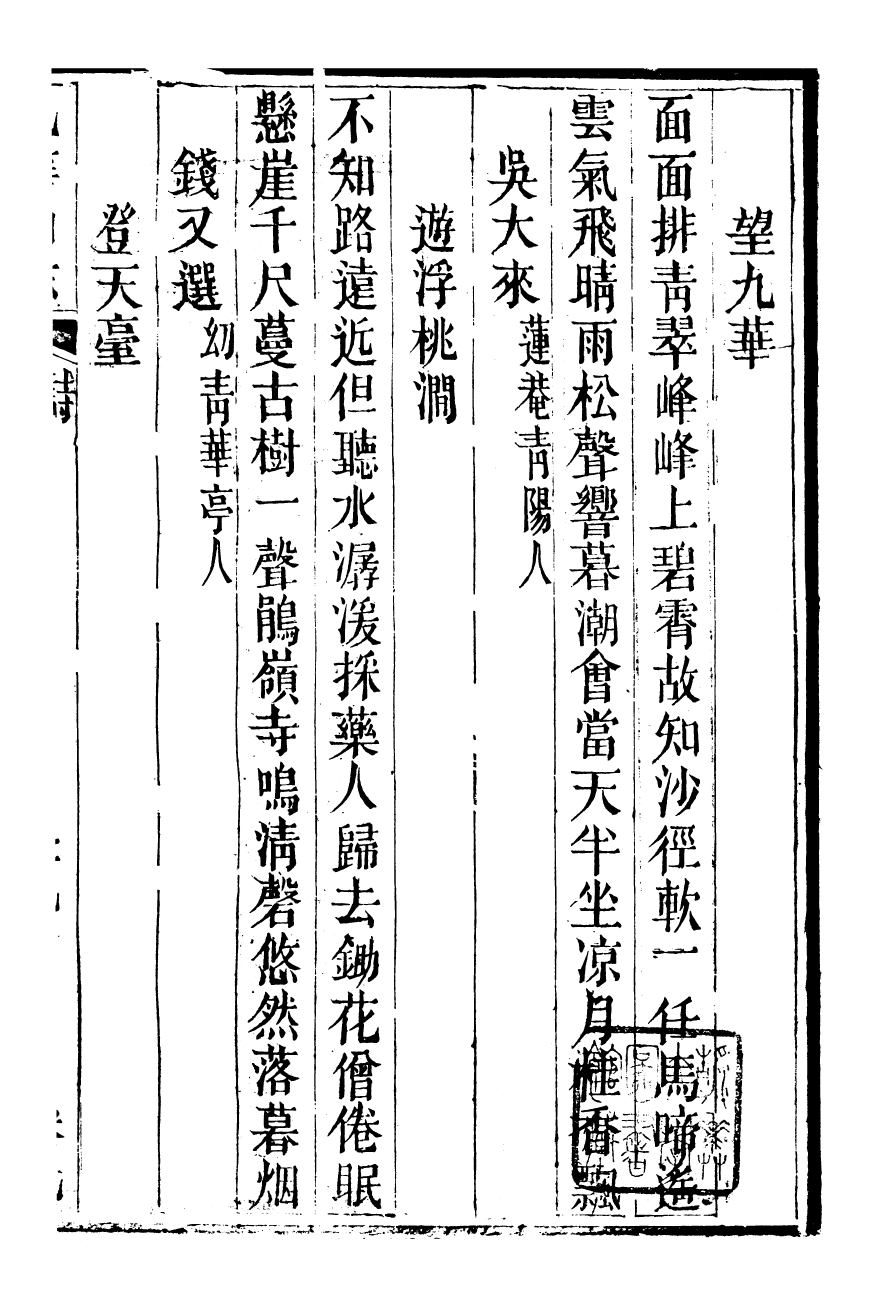 望九華
面面排青翠峰峰上碧霄故知沙徑軟一任馬啼遙
雲氣飛晴雨松聲響暮潮會當天半坐凉月桂香飄
吳大來蓮菴青陽人
遊浮桃澗
不知路遠近但聽水潺湲採藥人歸去鋤花僧倦眠
懸崖千尺蔓古樹一聲鵑嶺寺鳴淸磬悠然落暮烟
錢又選幼青華亭人
登天臺
詩